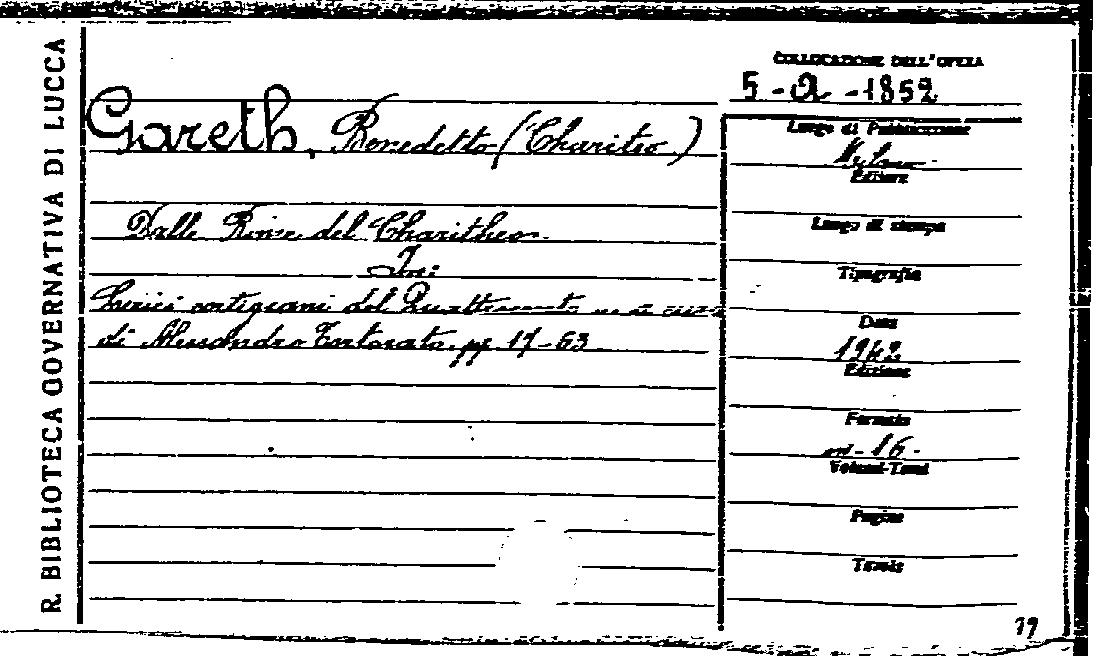 R. BIBLIOTECA GOVERNATIVA DI LUCCA
COLLOCAZIONE DELL'OPERA
5-Q-1852
Gareth, Benedetto (Chariteo)
Dalle Rime del Charitheo.
In:
Lirici cortigiani del Quattrocento a cura
di Alessandro Tortorato. pp 17-63
Luogo di Pubblicazione
Milano
Editore
Luogo di stampa
Tipografia
Data
1942
Edizione
Formato
in-16.
Volumi-Tomi
Pagine
Tavole